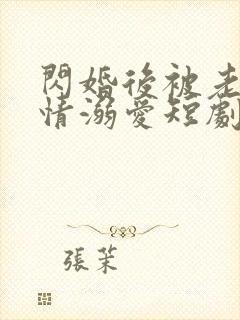 閃婚後被老
情溺愛短劇
張茉